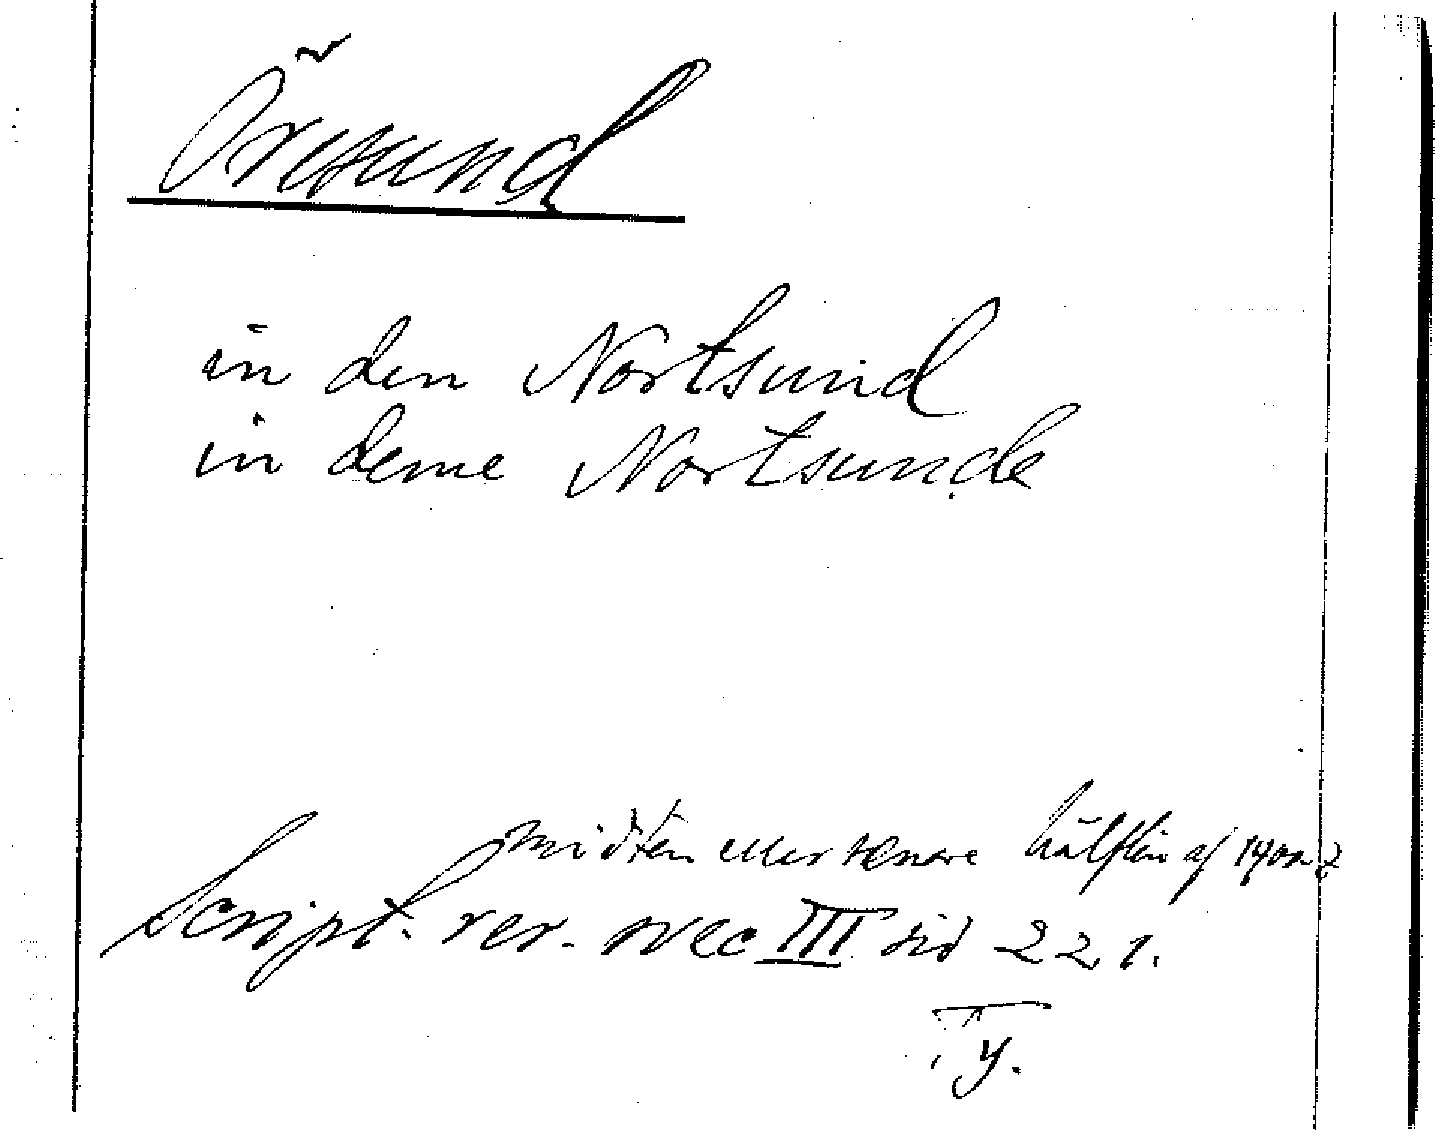 Öresund
in den Nortsund
in deme Nortsunde
midten eller senare hälften af 1400 t
Script. rer. svec III sid 221.
Ty.